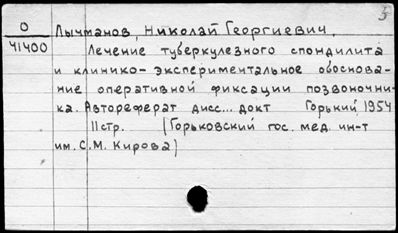 О
41400
Лычманов, Николай Георгиевич.
Лечение туберкулезного спондилита
и клинико-экспериментальное обоснова-
ние оперативной фиксации позвоночни-
ка. Автореферат дисс... докт Горький 1954
11стр. (Горьковский гос. мед. ин-т
им. С.М. Кирова)